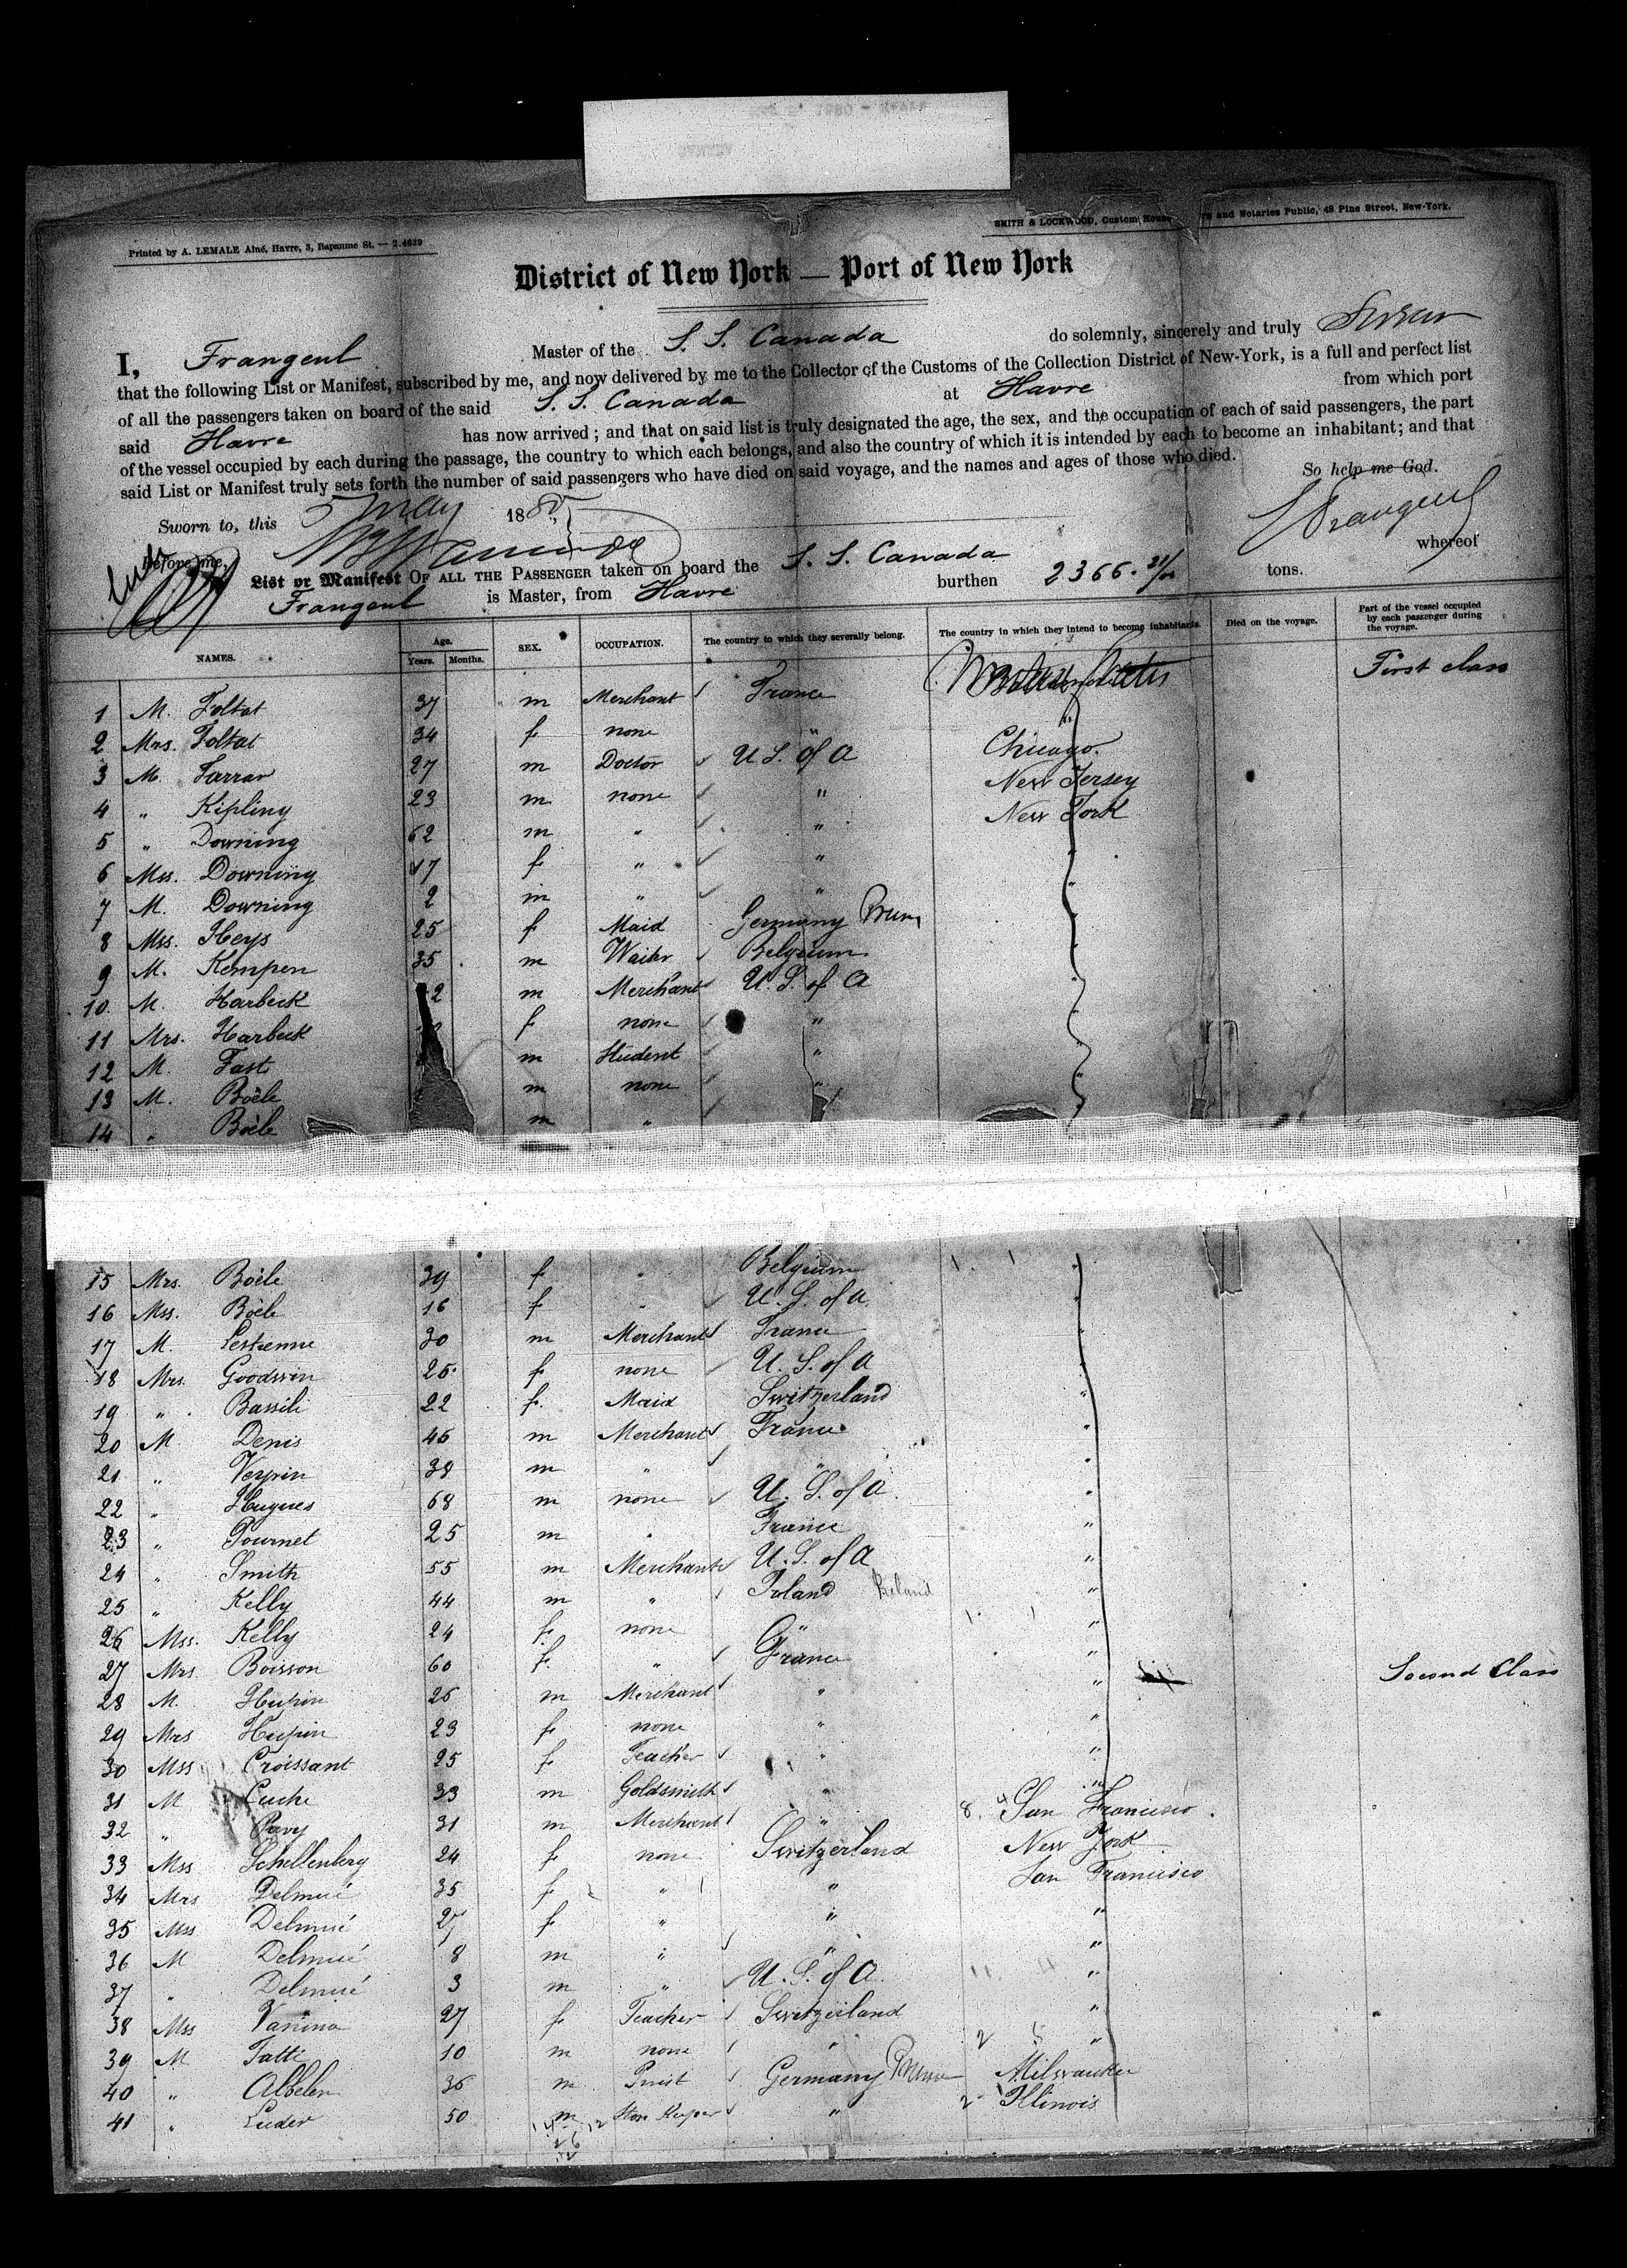 Printed by A. LEMALE Aîné, Havre, 3, Bapaume St. — 2.4629
SMITH & LOCKWOOD, Custom House and Notaries Public, 48 Pine Street, New-York.
District of New York — Port of New York
I, Frangeul Master of the S. S. Canada do solemnly, sincerely and truly Swear
that the following List or Manifest, subscribed by me, and now delivered by me to the Collector of the Customs of the Collection District of New-York, is a full and perfect list
of all the passengers taken on board of the said S. S. Canada at Havre from which port
said Havre has now arrived; and that on said list is truly designated the age, the sex, and the occupation of each of said passengers, the part
of the vessel occupied by each during the passage, the country to which each belongs, and also the country of which it is intended by each to become an inhabitant; and that
said List or Manifest truly sets forth the number of said passengers who have died on said voyage, and the names and ages of those who died.
So help me God.
Sworn to, this 5 May 188
Frangeul
before me,
List or Manifest OF ALL THE PASSENGER taken on board the S. S. Canada whereof
Frangeul is Master, from Havre burthen 2366. tons.
NAMES. Age. Years. Months. SEX. OCCUPATION. The country to which they severally belong. The country in which they intend to become inhabitants. Died on the voyage. Part of the vessel occupied by each passenger during the voyage.
1 M. Foltat 37 m Merchant France First class
2 Mrs. Foltat 34 f none " "
3 M. Farrar 27 m Doctor U S. of A Chicago.
4 " Kipling 23 m none " New Jersey
5 " Downing 62 m " " New York
6 Mss. Downing 17 f " " "
7 M. Downing 2 m " " "
8 Mss. Heys 25 f Maid Germany "
9 M. Kempen 35 m Waiter Belgium "
10 M. Harbeck m Merchant U. S. of A "
11 Mrs. Harbeck f none " "
12 M. Fast m Student " "
13 M. Boële m none " "
14 " Boële m "
15 Mrs. Boële 39 f " Belgium "
16 Mss. Boële 16 f " U. S. of A "
17 M. Lestienne 30 m Merchant France "
18 Mrs. Goodwin 25 f none U. S. of A "
19 " Bassili 22 f. Maid Switzerland "
20 M Denis 45 m Merchant France "
21 " Verpin 38 m " " "
22 " Hugues 68 m none U. S. of A "
23 " Pournet 25 m " France "
24 " Smith 55 m Merchant U. S. of A "
25 " Kelly 44 m " Irland Ireland "
26 Mss. Kelly 24 f. none " "
27 Mrs. Boisson 60 f. " France " Second Class
28 M. Hupin 26 m Merchant " "
29 Mrs Hupin 23 f none " "
30 Mss Croissant 25 f Teacher " "
31 M Cuche 33 m Goldsmith " "
32 " Pavy 31 m Merchant " San Francisco
33 Mss Schellenberg 24 f none Switzerland New York
34 Mrs Delmué 35 f " " San Francisco
35 Mss Delmué f " " "
36 M Delmué 8 m " " "
37 " Delmué 3 m " U. S. of A. "
38 Mss Vanina 27 f Teacher Switzerland "
39 M Tatti 10 m none " "
40 " Abbelen 36 m Priest Germany Milwaukee
41 " Luder 50 m Store Keeper " Illinois